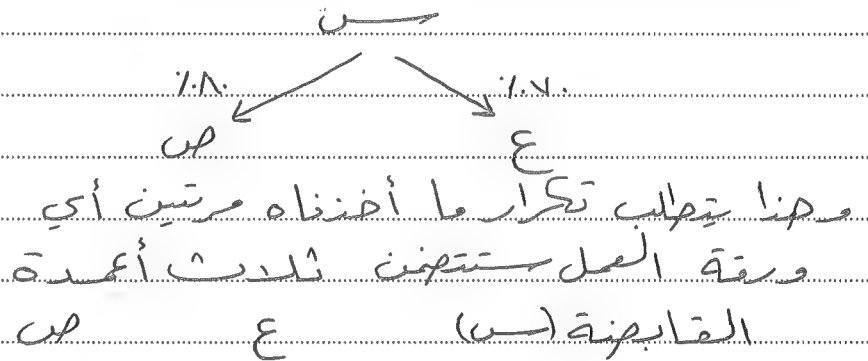 س
٪٧٠ ٪٨٠
ع ص
وهنا يتطلب تكرار ما أخذناه مرتين أي
ورقة العمل ستتضمن ثلاث أعمدة
القابضة (س) ع ص